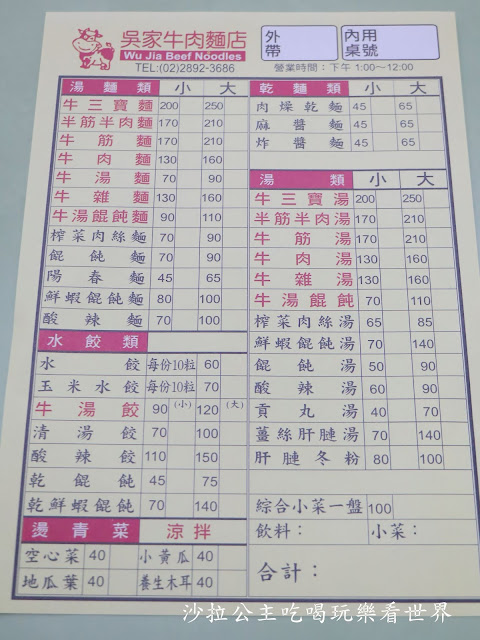 吳家牛肉麵店
Wu Jia Beef Noodles
TEL:(02)2892-3686
外帶
內用桌號
營業時間：下午 1:00～12:00
湯麵類 小 大
牛三寶麵 200 250
半筋半肉麵 170 210
牛筋麵 170 210
牛肉麵 130 160
牛湯麵 70 90
牛雜麵 130 160
牛湯餛飩麵 90 110
榨菜肉絲麵 70 90
餛飩麵 70 90
陽春麵 45 65
鮮蝦餛飩麵 80 100
酸辣麵 70 100
水餃類
水餃 每份10粒 60
玉米水餃 每份10粒 70
牛湯餃 90 (小) 120 (大)
清湯餃 70 100
酸辣餃 110 150
乾餛飩 45 75
乾鮮蝦餛飩 70 140
燙青菜 涼拌
空心菜 40 小黃瓜 40
地瓜葉 40 養生木耳 40
乾麵類 小 大
肉燥乾麵 45 65
麻醬麵 45 65
炸醬麵 45 65
湯類 小 大
牛三寶湯 200 250
半筋半肉湯 170 210
牛筋湯 170 210
牛肉湯 130 160
牛雜湯 130 160
牛湯餛飩 70 110
榨菜肉絲湯 65 85
鮮蝦餛飩湯 70 140
餛飩湯 50 90
酸辣湯 60 90
貢丸湯 40 70
薑絲肝腱湯 70 140
肝腱冬粉 80 100
綜合小菜一盤 100
飲料： 小菜：
合計：
沙拉公主吃喝玩樂看世界